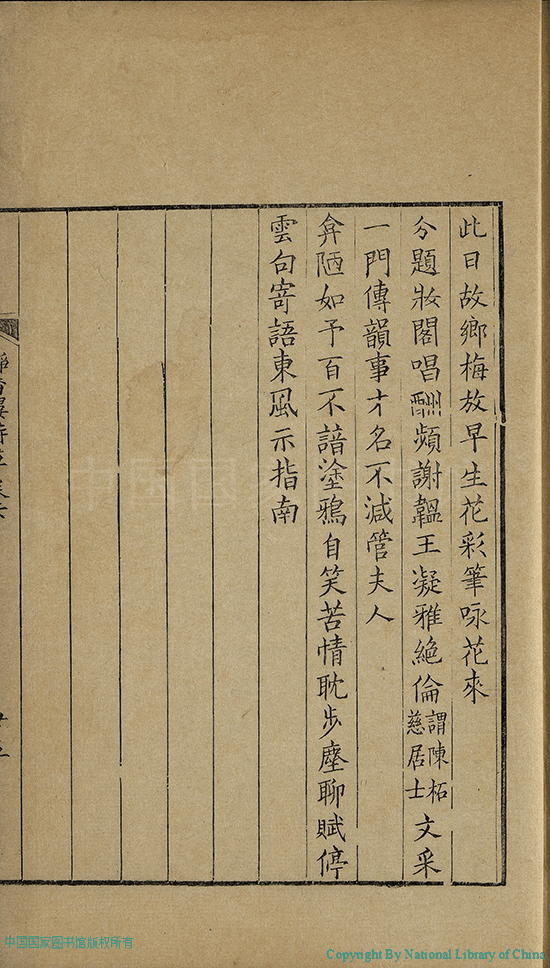 此日故鄉梅放早生花彩筆咏花來
分題妝閣唱酬頻謝韞王凝雅絕倫謂陳柘慈居士文采
一門傳韻事才名不減管夫人
弇陋如予百不諳塗鴉自笑苦情耽步塵聊賦停
雲句寄語東風示指南
中国国家图书馆版权所有
Copyright By National Library of China